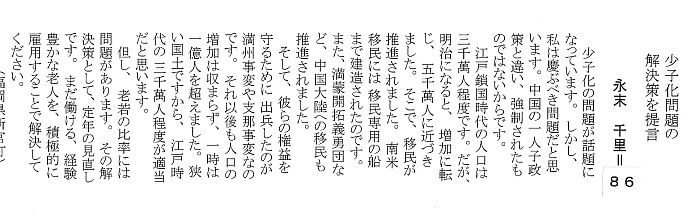 少子化問題の
解決策を提言
永末　千里＝
８６
少子化の問題が話題に
なっています。しかし、
私は慶ぶべき問題だと思
います。中国の一人子政
策と違い、強制されたも
のではないからです。
江戸鎖国時代の人口は
三千万人程度です。だが、
明治になると、増加に転
じ、五千万人に近づき
ました。そこで、移民が
推進されました。南米
移民には移民専用の船
まで建造されたのです。
また、満蒙開拓義勇団な
ど、中国大陸への移民も
推進されました。
そして、彼らの権益を
守るために出兵したのが
満州事変や支那事変なの
です。それ以後も人口の
増加は収まらず、一時は
一億人を超えました。狭
い国土ですから、江戸時
代の三千万人程度が適当
だと思います。
但し、老若の比率には
問題があります。その解
決策として、定年の見直し
です。まだ働ける、経験
豊かな老人を、積極的に
雇用することで解決して
ください。